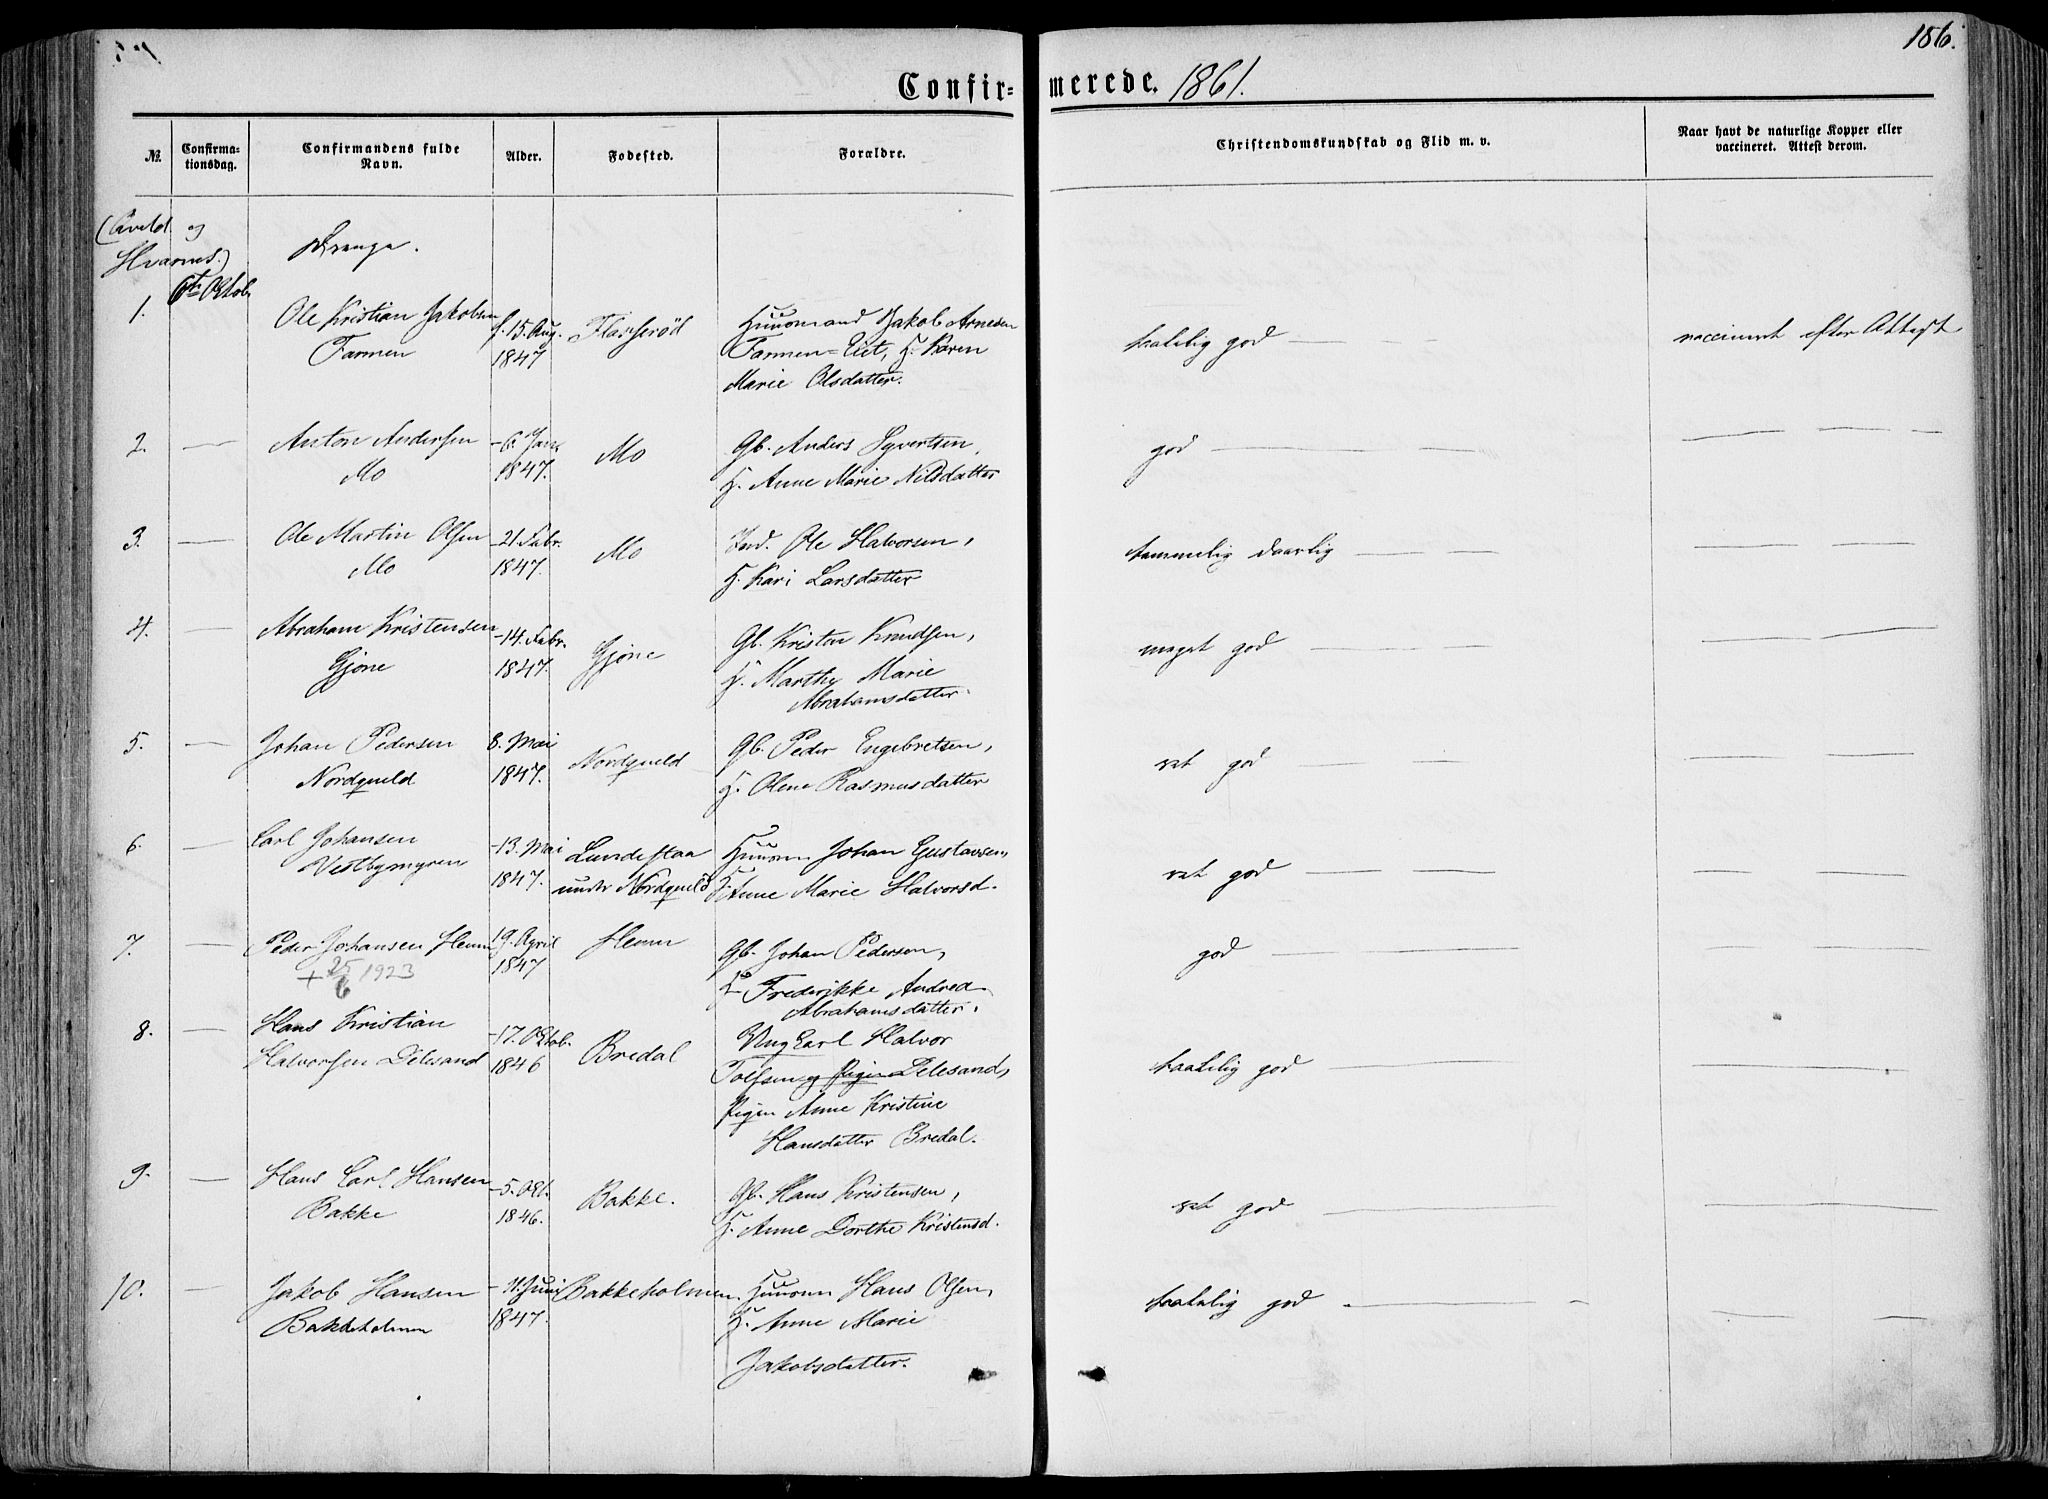 186.
Confirmerede. 1861.
№.
Confirmationsdag.
Confirmandens fulde Navn.
Alder.
Fødested.
Forældre.
Christendomskundskab og Flid m. v.
Naar havt de naturlige Kopper eller vaccineret. Attest derom.
(Qveld og
Hvarnes.)
Drenge.
6te Oktob.
1.
Ole Kristian Jakobsen
Farmen
f. 15. Aug.
1847
Huusmand Jakob Arnesen
Farmen=Eiet, H. Karen
Marie Olsdatter.
taalelig god
vaccineret efter Attest
2. —
Anton Andersen
Mo
- 6. Jan.
1847.
Mo
Gb. Anders Syvertsen,
H. Anne Marie Nilsdatter
god
3. —
Ole Martin Olsen
Mo
- 21. Febr.
1847.
Mo
Ind. Ole Halvorsen,
H. Kari Larsdatter
temmelig daarlig
4. —
Abraham Kristensen
Gjøne
- 14. Febr.
1847.
Gjøne
Gb. Kristen Knudsen,
H. Marthe Marie
Abrahamsdatter.
meget god
5. —
Johan Pedersen
Nordqueld
8. Mai
1847.
Nordqueld
Gb. Peder Engebretsen,
H. Olene Rasmusdatter
ret god
6. —
Carl Johansen
Vestbymyren
- 13. Mai
1847.
Lundestaa
under Nordqueld
Huusm Johan Gustavsen,
H. Anne Marie Halvorsd.
ret god
7. —
Peder Johansen Hemm
+ 25/6 1923
19. April
1847
Hemm
Gb. Johan Pedersen,
H. Frederikke Andrea
Abrahamsdatter.
god
8. —
Hans Kristian
Halvorsen Delesand
- 17. Oktob.
1846
Bredal
Ungkarl Halvor
Tolfsen og Pigen Delesand,
Pigen Anne Kristine
Hansdatter Bredal.
taalelig god
9. —
Hans Carl Hansen
Bakke
- 5. Okt.
1846.
Bakke.
Gb. Hans Kristensen,
H. Anne Dorthe Kristensd.
ret god
10. —
Jakob Hansen
Bakkeholmen
- 11 Juni
1847.
Bakkeholmen.
Huusm Hans Olsen,
H. Anne Marie
Jakobsdatter.
taalelig god